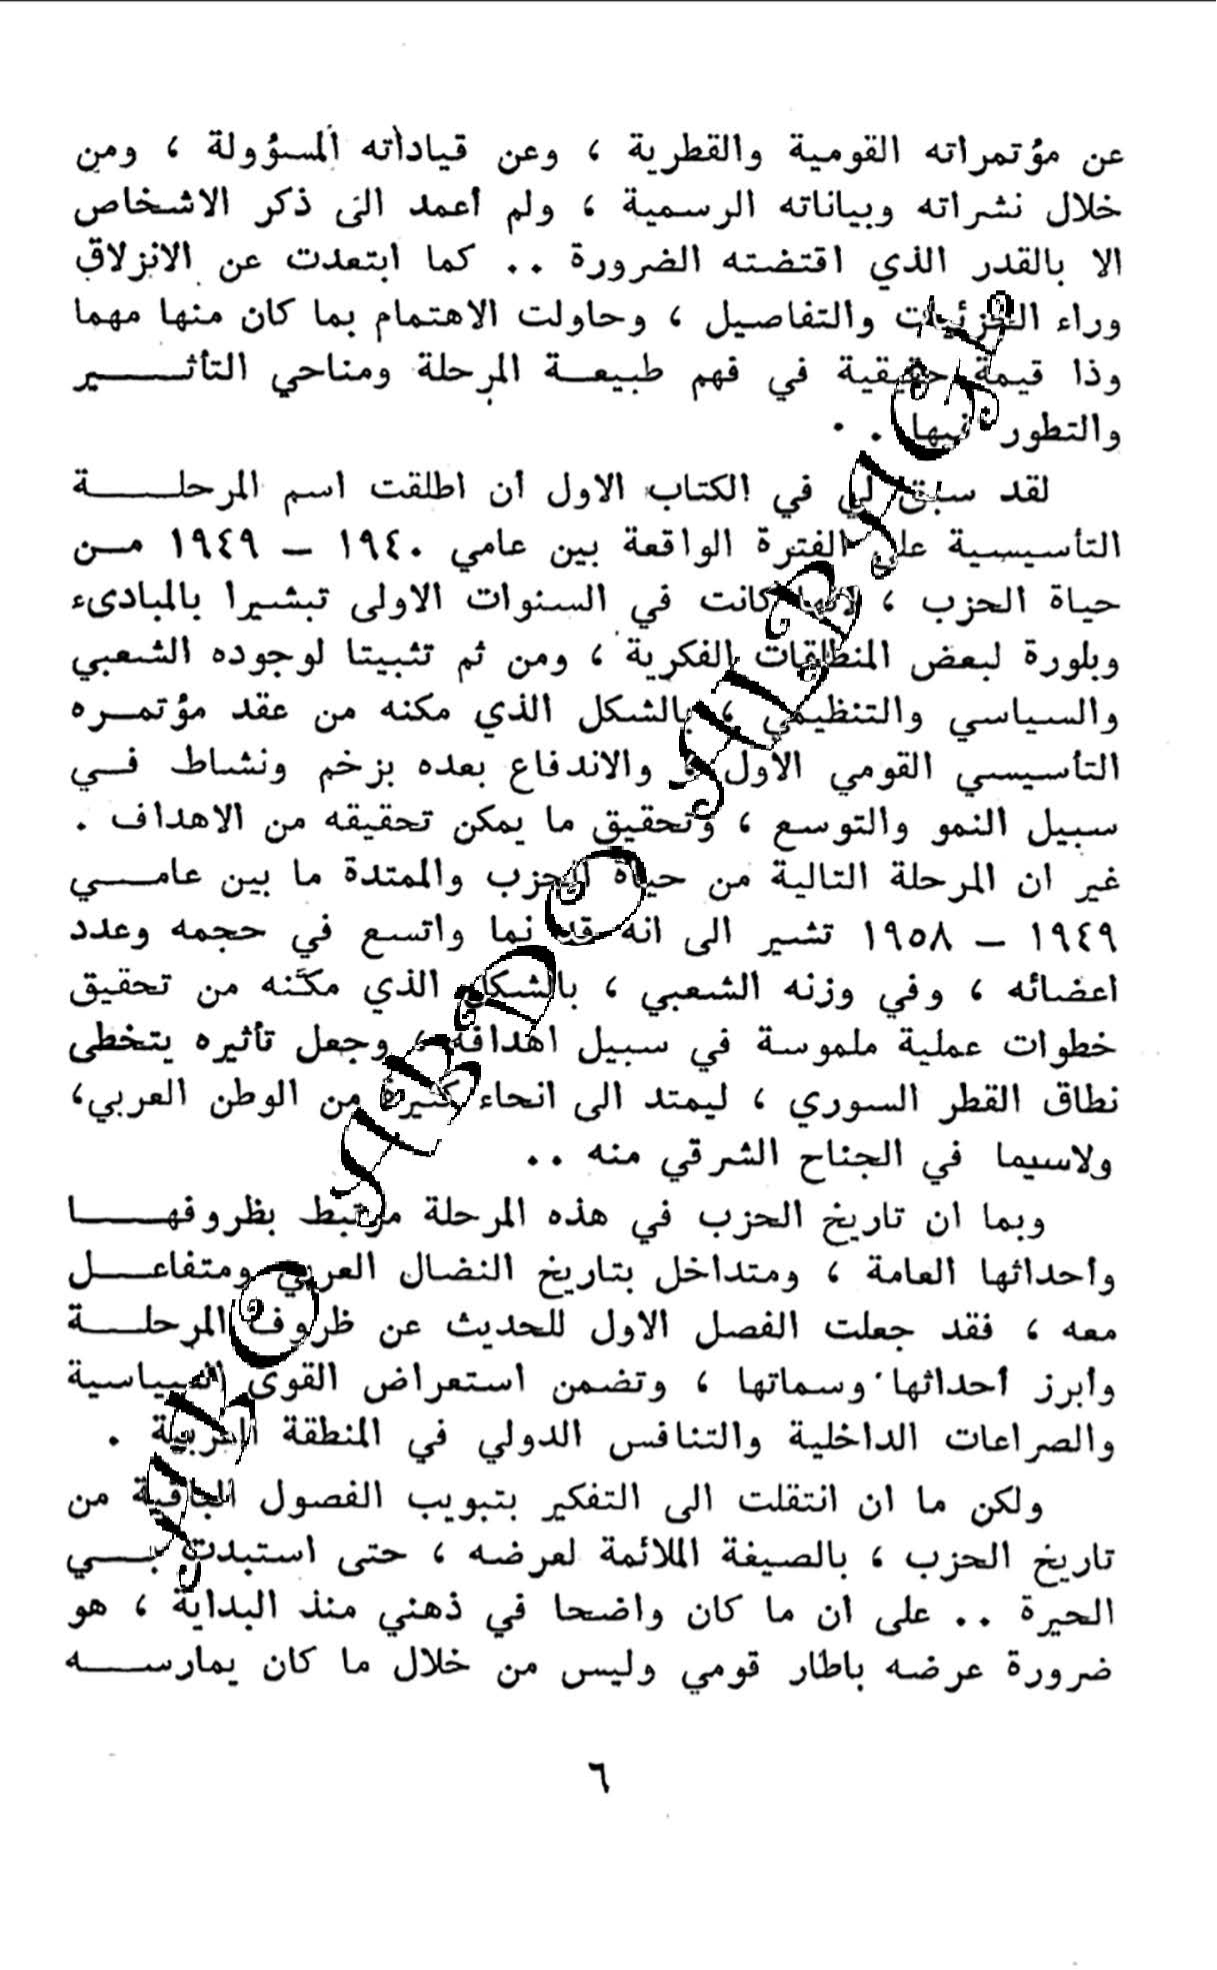 عن مؤتمراته القومية والقطرية ، وعن قياداته المسؤولة ، ومن
خلال نشراته وبياناته الرسمية ، ولم أعمد الى ذكر الاشخاص
الا بالقدر الذي اقتضته الضرورة .. كما ابتعدت عن الانزلاق
وراء الجزئيات والتفاصيل ، وحاولت الاهتمام بما كان منها مهما
وذا قيمة حقيقية في فهم طبيعة المرحلة ومناحي التأثير
والتطور فيها ..
لقد سبق لي في الكتاب الاول أن اطلقت اسم المرحلة
التأسيسية على الفترة الواقعة بين عامي ١٩٤٠ – ١٩٤٩ من
حياة الحزب ، لانها كانت في السنوات الاولى تبشيرا بالمبادىء
وبلورة لبعض المنطلقات الفكرية ، ومن ثم تثبيتا لوجوده الشعبي
والسياسي والتنظيمي ، بالشكل الذي مكنه من عقد مؤتمره
التأسيسي القومي الاول ، والاندفاع بعده بزخم ونشاط في
سبيل النمو والتوسع ، وتحقيق ما يمكن تحقيقه من الاهداف .
غير ان المرحلة التالية من حياة الحزب والممتدة ما بين عامي
١٩٤٩ – ١٩٥٨ تشير الى انه قد نما واتسع في حجمه وعدد
اعضائه ، وفي وزنه الشعبي ، بالشكل الذي مكّنه من تحقيق
خطوات عملية ملموسة في سبيل اهدافه ، وجعل تأثيره يتخطى
نطاق القطر السوري ، ليمتد الى انحاء كثيرة من الوطن العربي،
ولاسيما في الجناح الشرقي منه ..
وبما ان تاريخ الحزب في هذه المرحلة مرتبط بظروفها
وأحداثها العامة ، ومتداخل بتاريخ النضال العربي ومتفاعل
معه ، فقد جعلت الفصل الاول للحديث عن ظروف المرحلة
وأبرز أحداثها وسماتها ، وتضمن استعراض القوى السياسية
والصراعات الداخلية والتنافس الدولي في المنطقة العربية .
ولكن ما ان انتقلت الى التفكير بتبويب الفصول الباقية من
تاريخ الحزب ، بالصيغة الملائمة لعرضه ، حتى استبدت بي
الحيرة .. على ان ما كان واضحا في ذهني منذ البداية ، هو
ضرورة عرضه باطار قومي وليس من خلال ما كان يمارسه
٦